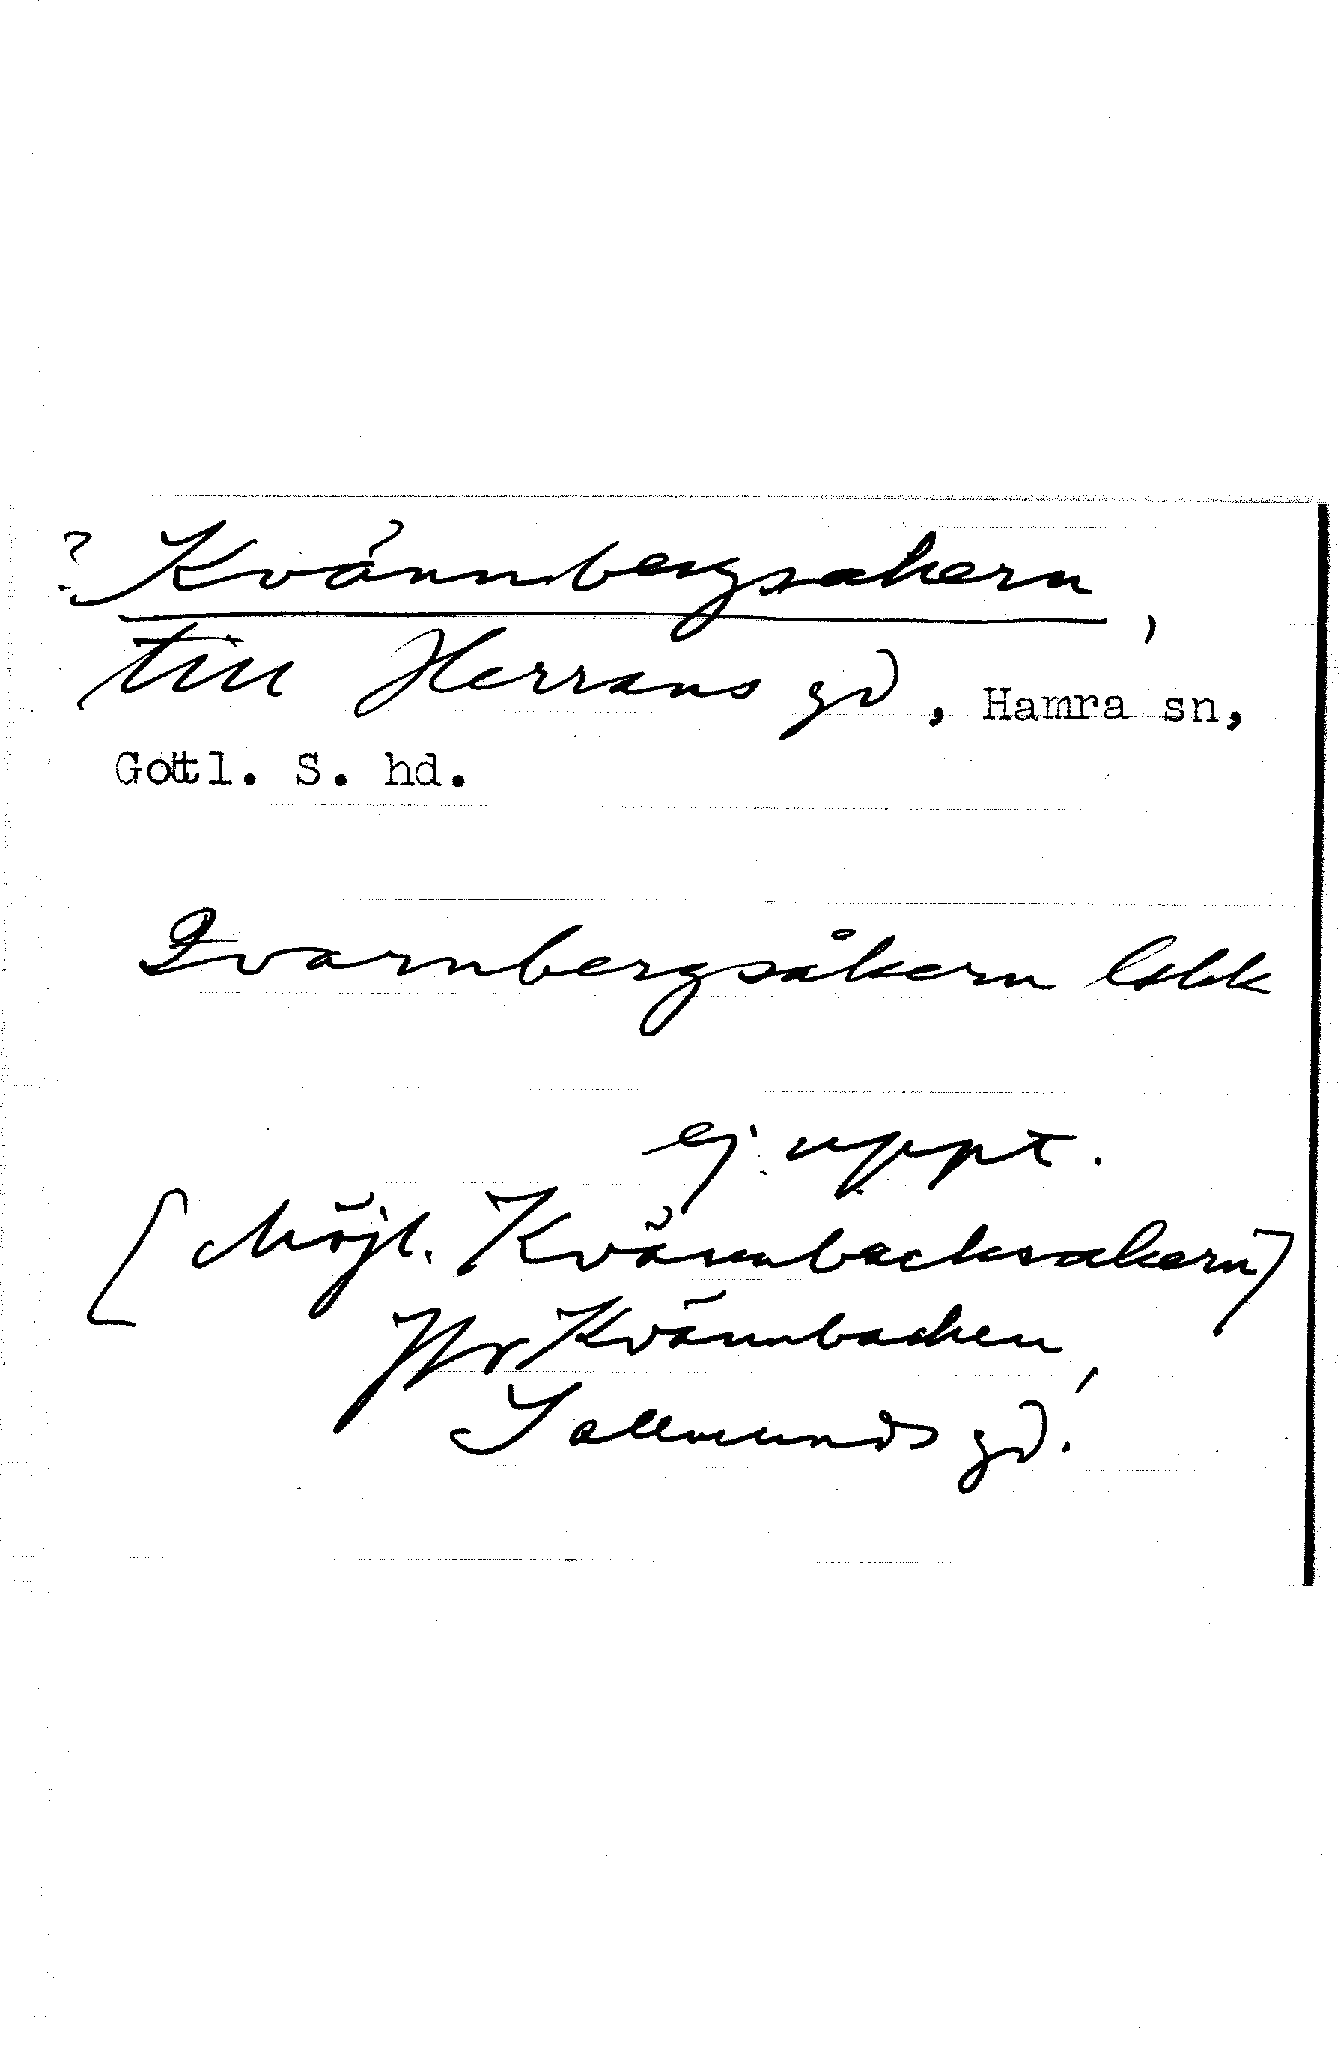 ? Kvännbergsakern,
till Herrans gd, Hamra sn,
Gottl. S. hd.
Qvarnbergsåkern
ej uppt.
[Möjl. Kvännbacksakern]
Jfr Kvännbacken,
Sallmunds gd.